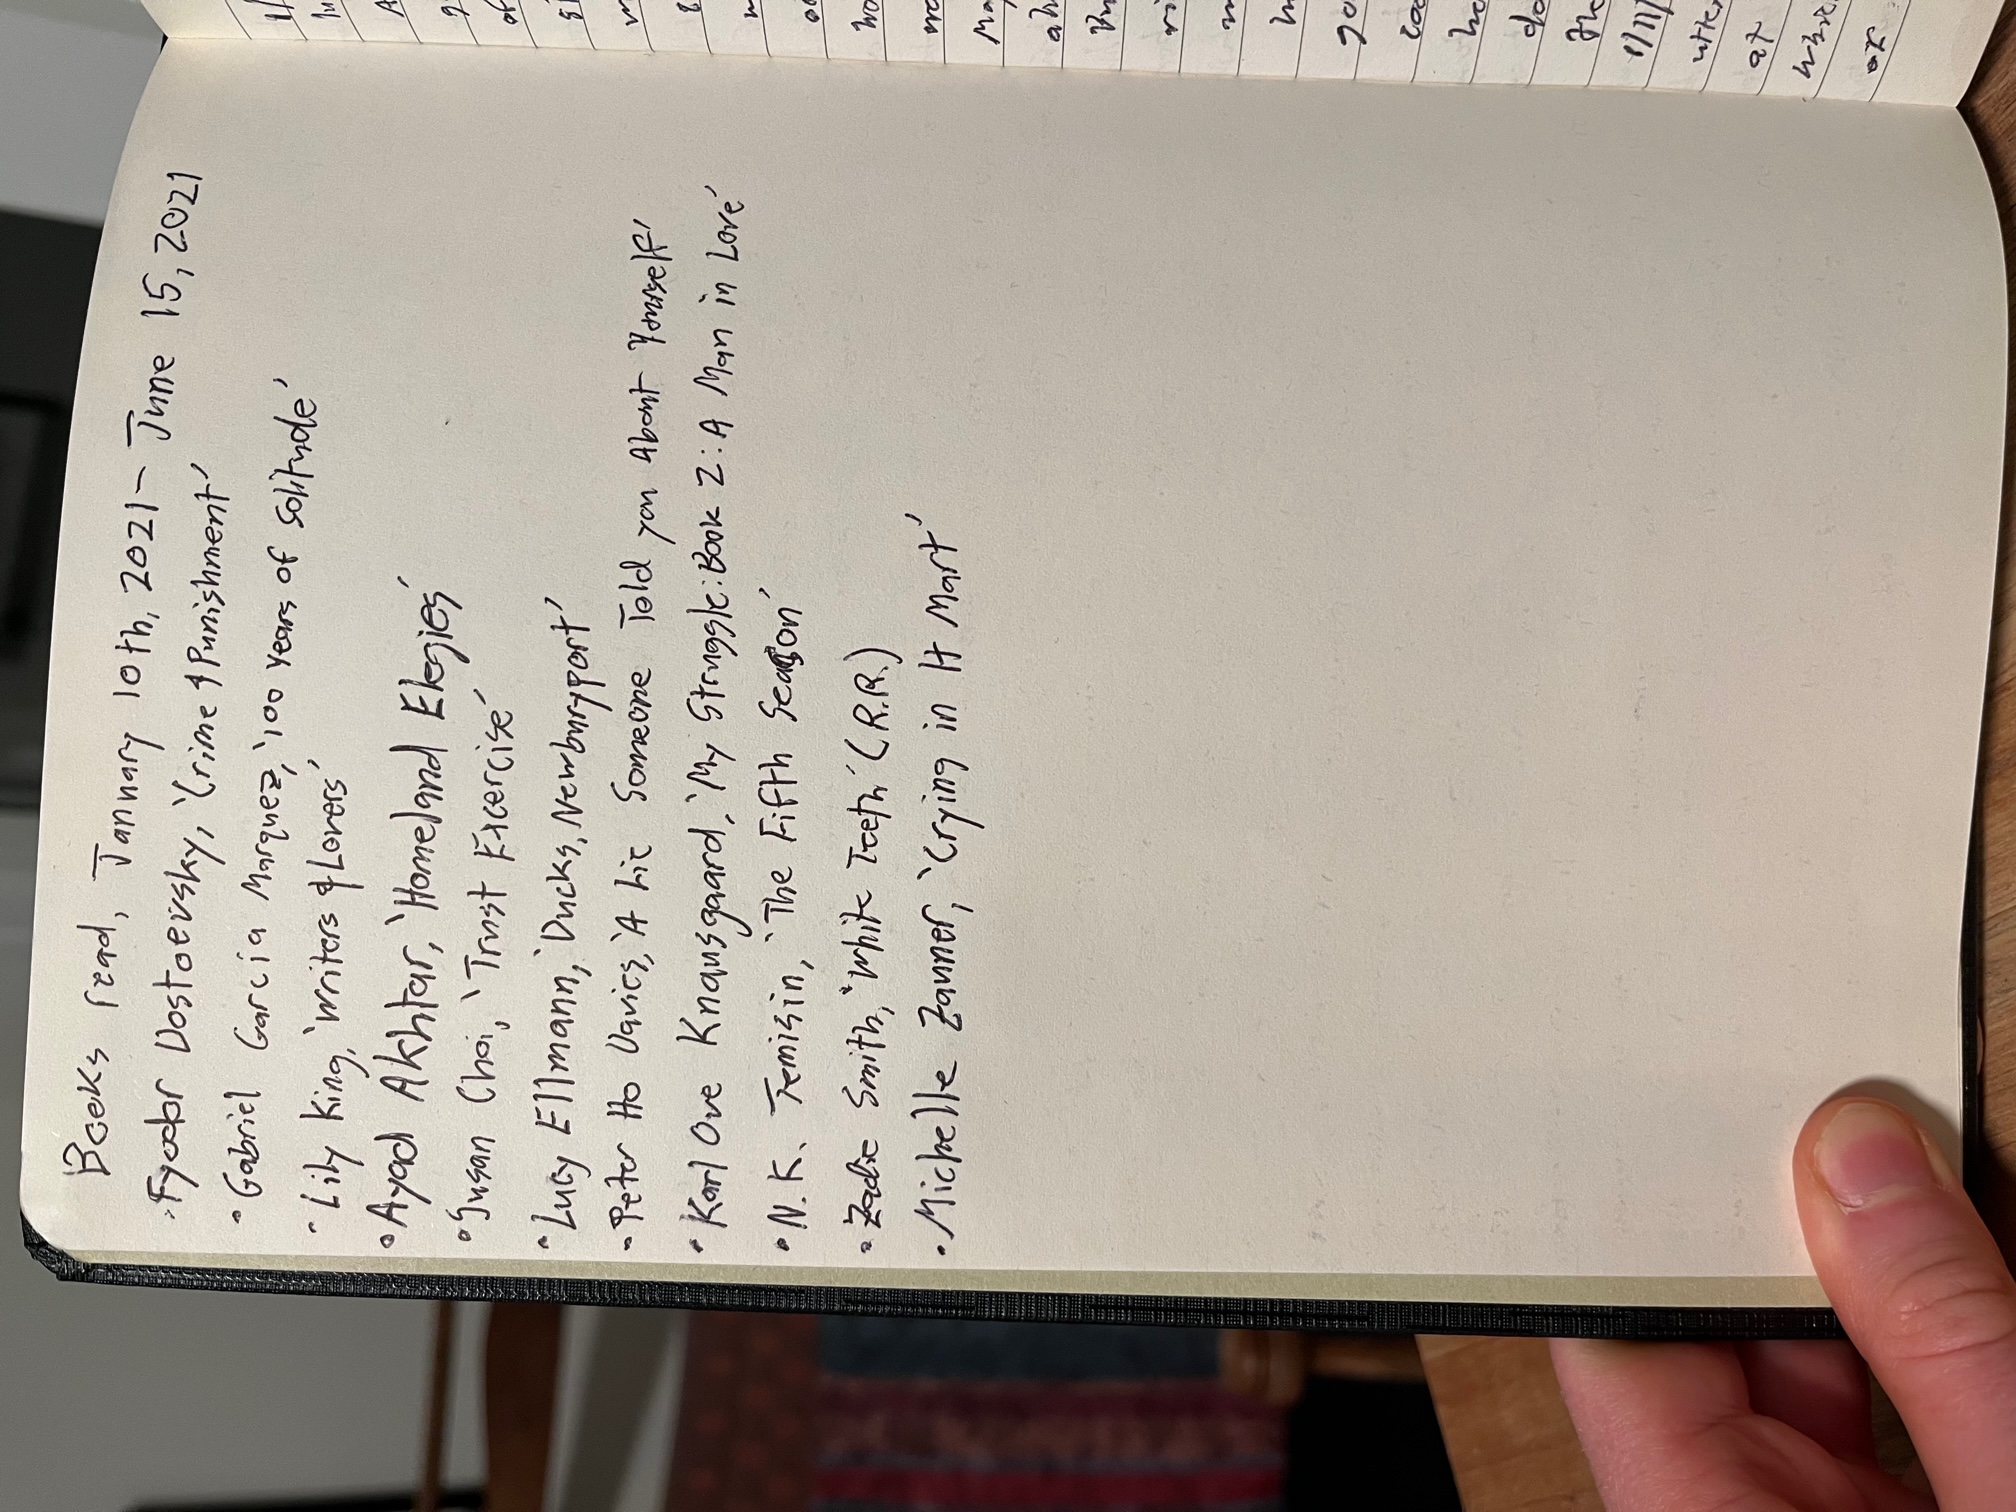 Books read, January 10th, 2021 - June 15, 2021
· Fyodor Dostoevsky, 'Crime & Punishment'
· Gabriel Garcia Marquez, '100 Years of Solitude'
· Lily King, 'Writers & Lovers'
· Ayad Akhtar, 'Homeland Elegies'
· Susan Choi, 'Trust Excercise'
· Lucy Ellmann, 'Ducks, Newburyport'
· Peter Ho Davies, 'A Lie Someone Told you About Yourself'
· Karl Ove Knausgaard, 'My Struggle: Book 2: A Man in Love'
· N.K. Jemisin, 'The Fifth Season'
· Zadie Smith, 'White Teeth' (R.R.)
· Michelle Zauner, 'Crying in H Mart'
of
at